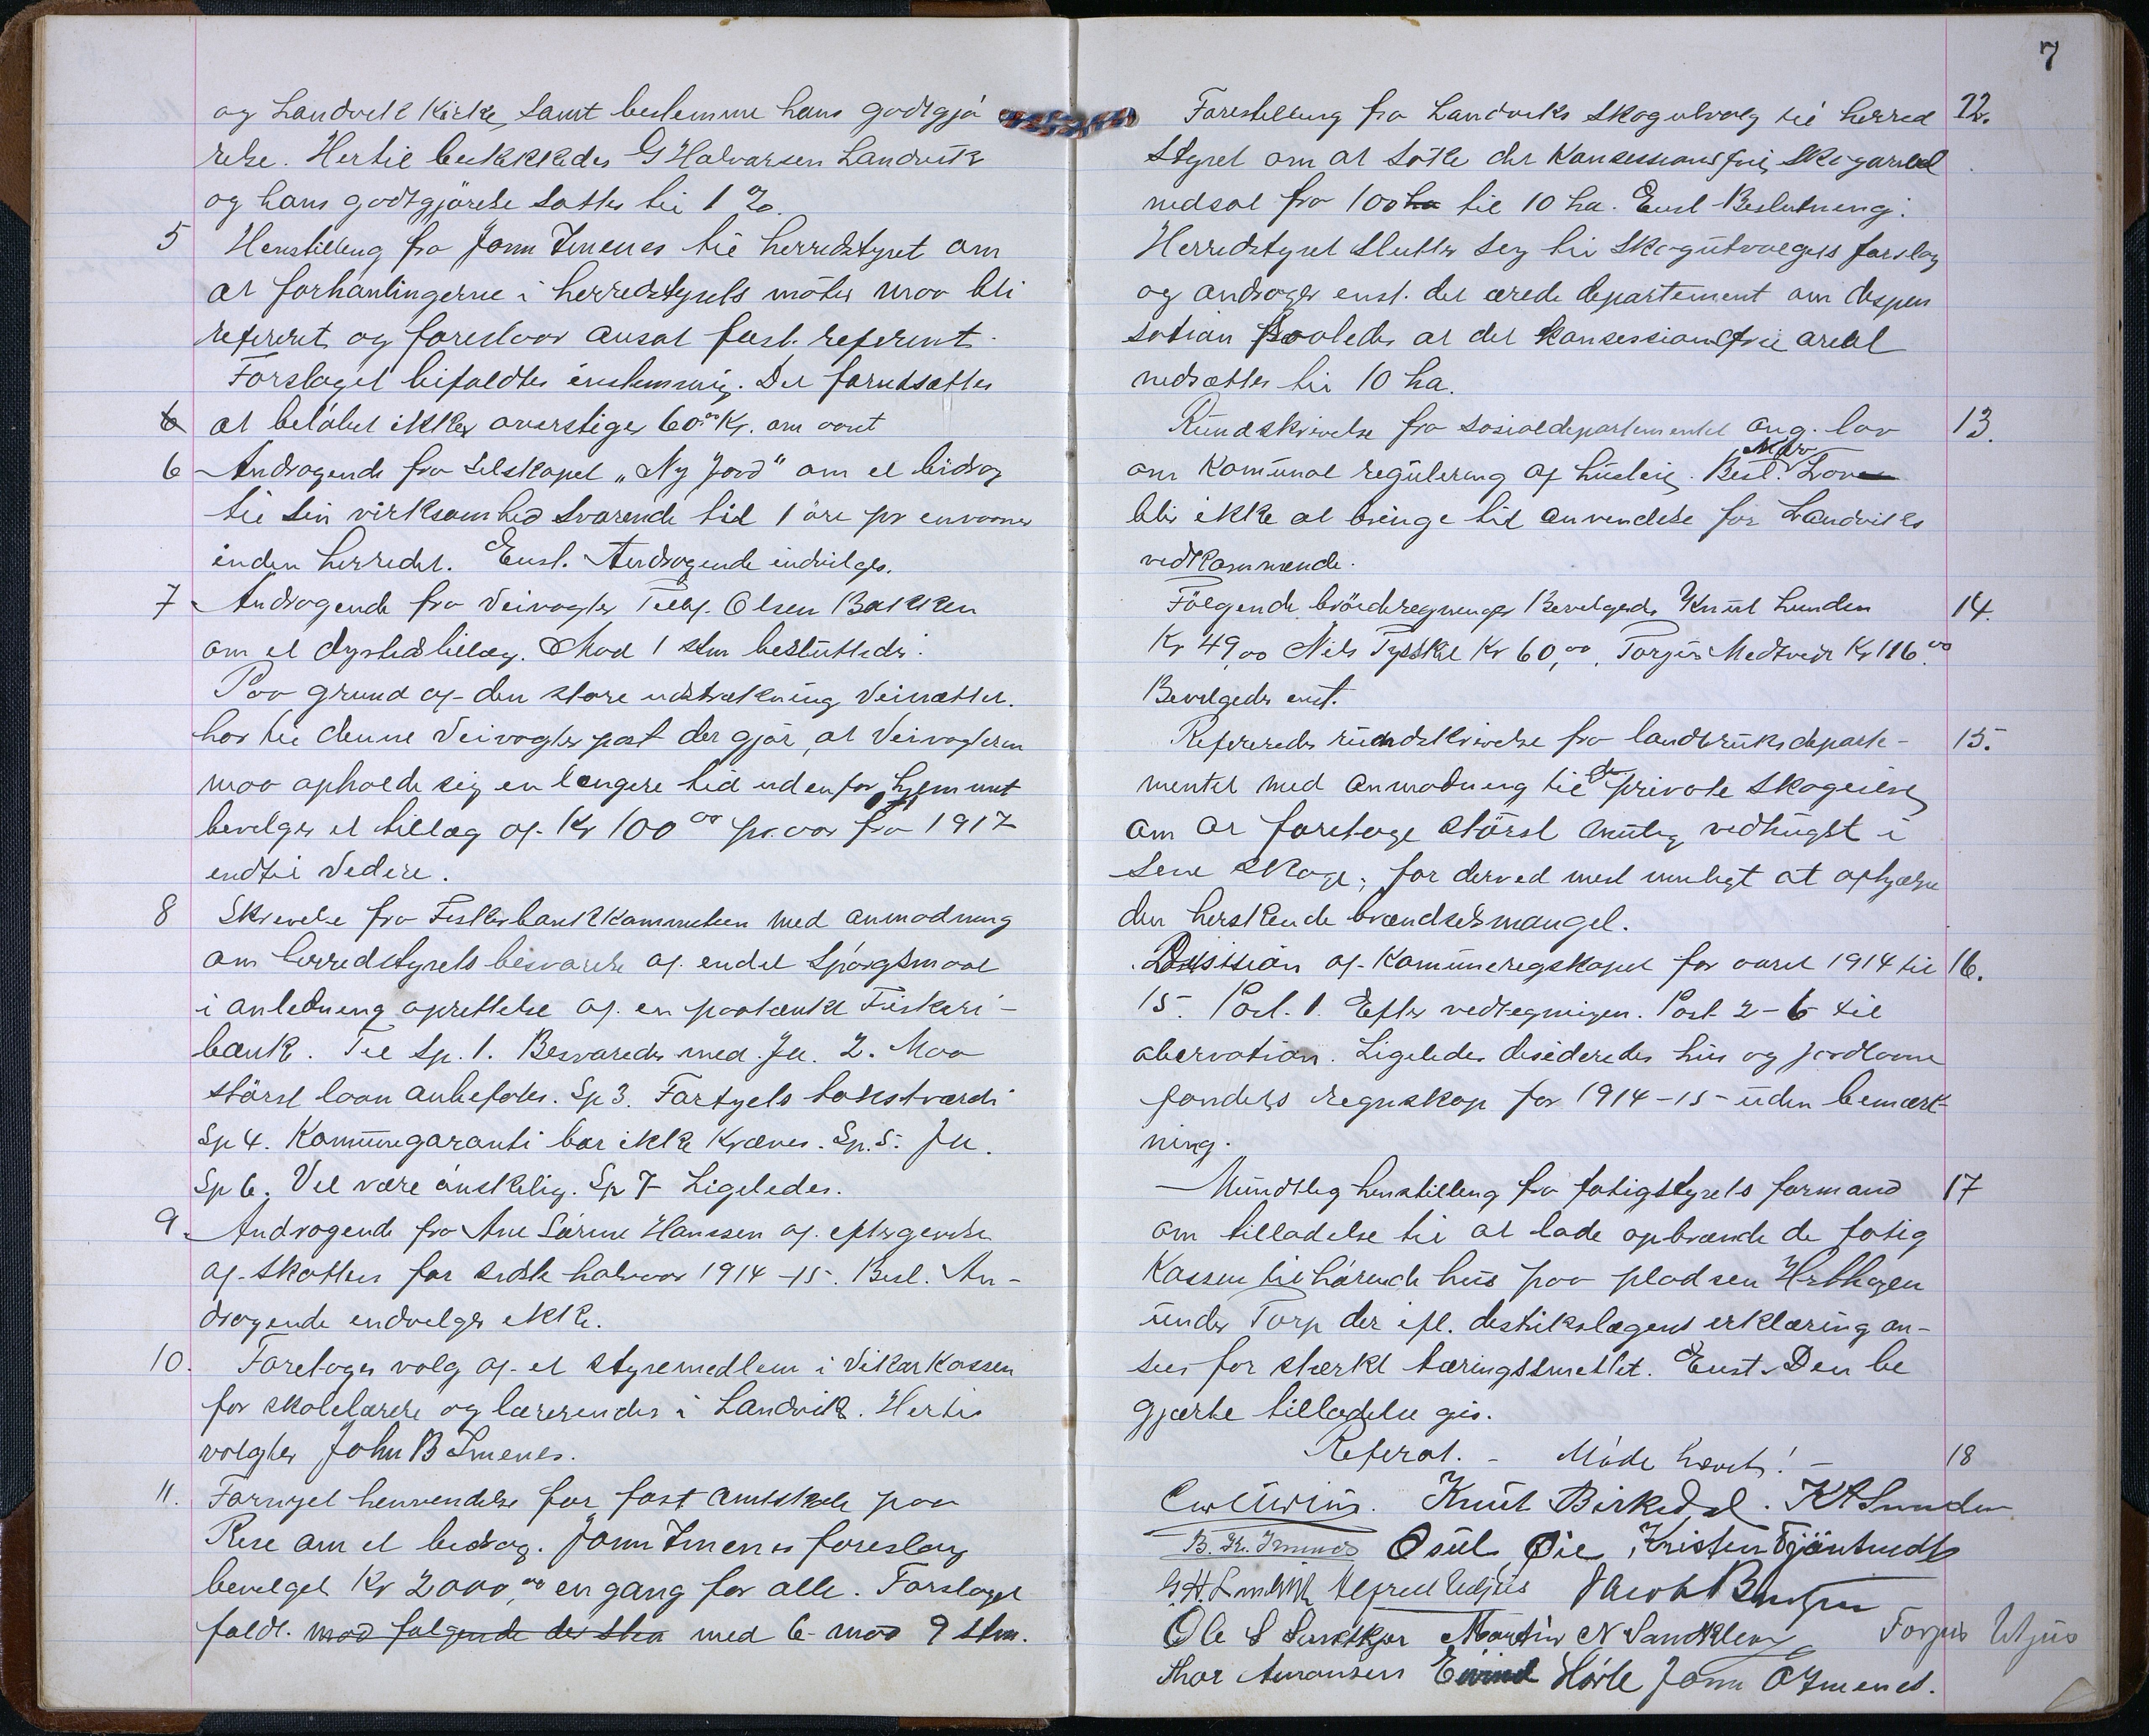 og Landvik Kirke, samt bestemme hans godtgjö
relse. Hertil beskikkedes G Halvorsen Landvik
og hans godtgjörelse sattes til 1 %.
5 Henstilling fra Jörm Imenes til herredstyret om
at forhanlingerne i herredstyrets möter maa bli
referert og foreslaar ansat fast referent.
Forslaget bifaldtes enstemmig. Det forutsættes
6 at belöbet ikke overstiger 60,00 Kr. om aaret
6 Andragende fra Selskapet „Ny Jord" om et bidrag
til sin virksomhed svarende til 1 öre pr envaaner
inden herredet. Enst. Andragende indvilges.
7 Andragende fra Veivogter Tellef Olsen Bakken
om et dyrtidstillæg. Mod 1 stm besluttedes:
Paa grund af den store udstrækning Veinættet
har til denne Veivogterpost der gjör, at Veivogteren
maa opholde sig en længere tid udenfor hjemmet
bevilges et tillæg af Kr 100 00 pr. aar fra 1917
indtil videre.
8 Skrivelse fra Fiskerbankkommiteen med anmodning
om herredstyrets besvarelse af endel Spörgsmaal
i anledning oprettelse af en paatænkt Fiskeri-
bank. Til Sp. 1. Besvaredes med Ja. 2. Maa
störst laan anbefales. Sp 3. Fartyets takstværdi
Sp 4. Komunegaranti bör ikke kræves. Sp. 5. Ja.
Sp 6. Vil være önskelig. Sp 7 Ligeledes.
9. Andragende fra Ane Sörine Hanssen af eftergivelse
af Skatten for sidste halvaar 1914-15. Besl. An-
dragende indvilges ikke.
10. Foretages valg af et styremedlem i Vikarkassen
for skolelærere og lærerinder i Landvik. Hertil
valgtes John B Imenes.
11. Fornyet henvendelse for fast amtskole paa
Rise om et bidrag. Jörm Imenes foreslog
bevilget Kr 2000,00 en gang for alle. Forslaget
faldt. mod følgende des stm med 6 mod 9 stm.
7
Forestilling fra Landviks Skogutvalg til herred 12.
Styret om at söke det Konsessionsfri Skogareal
nedsat fra 100 ha til 10 ha. Enst Beslutning:
Herredstyret slutter seg til Skogutvalgets forslag
og andrager enst. det ærede departement om dispen
sation saaledes at det konsessionsfrie areal
nedsættes til 10 ha.
Rundskrivelse fra Sosialdepartementet ang. lov 13.
om Komunal regulering af husleie. Besl. Loven
blir ikke at bringe til anvendelse for Landviks
vedkommende.
Fölgende bröideregninger bevilgedes Knut Lunden 14.
Kr 49,00 Nils Tysskel Kr 60,00, Torjus Medtveit Kr 116.00
Bevilgedes enst.
Refereredes rundskrivelse fra landbruksdeparte- 15.
mentet med anmodning til de private skogeiere
om at foretage störst mulig vedhugst i
sine skoge, for derved mest muligt at afhjælpe
den herskende brændselsmangel.
Desision af Komuneregskapet for aaret 1914 til 16.
15. Post. 1. Efter vedtegningen. Post 2-6 til
obervation. Ligeledes desideredes hus og jordlaane
fondets regnskap for 1914-15 uden bemærk-
ning.
Mundtlig henstilling fra fatigstyrets formand 17
om tilladelse til at lade opbrænde de fatig
Kassen tilhörende hus paa pladsen
under Torp der ifl. distrikslægens erklæring an-
sees for stærkt tæringssmittet. Enst. Den be
gjærte tilladelse gis.
Referat. - Möde hævet! - 18
Knut Birkedal. K A Lunden
B. Kr. Imenes Osul Öie, Kristen Fjörtmedt
G. H. Landvik Alfred Utljus Jacob
Ole S Landkjær Martin N Sandkleiv Torjus Utjus
Thor Amonsen Eivind Hörte Jörm O Imenes.